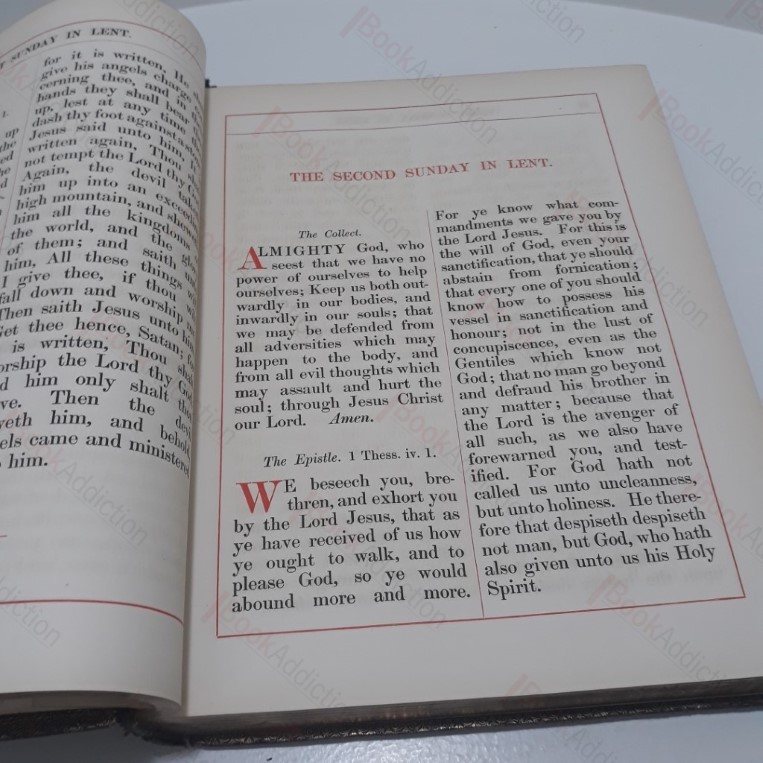 SUNDAY IN LENT.
for it is written, He
give his angels charge
cerning thee, and in
hands they shall bear
up, lest at any time
dash thy foot against a
Jesus said unto him, It
written again, Thou
not tempt the Lord thy
Again, the devil
him up into an
high mountain, and
him all the kingdoms
the world, and the
of them; and saith
him, All these things
I give thee, if thou
fall down and worship
Then saith Jesus unto
Get thee hence, Satan:
is written, Thou
worship the Lord thy God
him only shalt
Then the
him, and behold
came and ministered
him.
THE SECOND SUNDAY IN LENT.
The Collect.
ALMIGHTY God, who
seest that we have no
power of ourselves to help
ourselves; Keep us both out-
wardly in our bodies, and
inwardly in our souls; that
we may be defended from
all adversities which may
happen to the body, and
from all evil thoughts which
may assault and hurt the
soul; through Jesus Christ
our Lord. Amen.
The Epistle. 1 Thess. iv. 1.
WE beseech you, bre-
thren, and exhort you
by the Lord Jesus, that as
ye have received of us how
ye ought to walk, and to
please God, so ye would
abound more and more.
For ye know what com-
mandments we gave you by
the Lord Jesus. For this is
the will of God, even your
sanctification, that ye should
abstain from fornication;
that every one of you should
know how to possess his
vessel in sanctification and
honour; not in the lust of
concupiscence, even as the
Gentiles which know not
God; that no man go beyond
and defraud his brother in
any matter; because that
the Lord is the avenger of
all such, as we also have
forewarned you, and test-
ified. For God hath not
called us unto uncleanness,
but unto holiness. He there-
fore that despiseth despiseth
not man, but God, who hath
also given unto us his Holy
Spirit.
BookAddiction